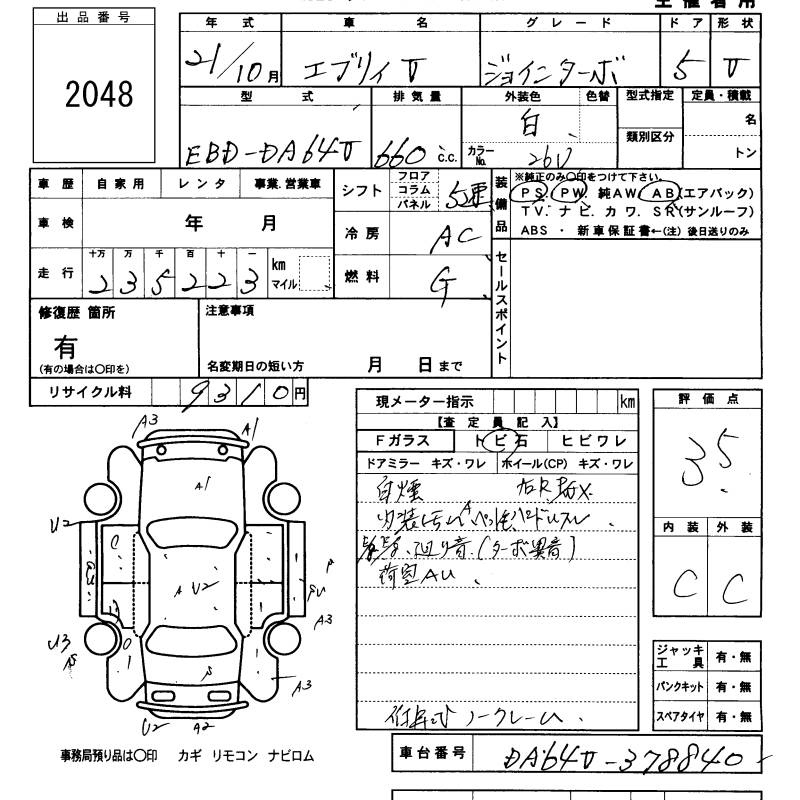 出品番号
2048
年式 車名 グレード ドア 形状
21/10月 エブリィV ジョインターボ 5 V
型式 排気量 外装色 色替 型式指定 定員・積載
EBD-DA64V 660 c.c. 白 カラーNo. 26U 類別区分 名 トン
車歴 自家用 レンタ 事業.営業車
車検 年 月
走行 十万 万 千 百 十 一
235223 km マイル
シフト フロア コラム パネル 5速
冷房 AC
燃料 G
装備品
※純正のみ○印をつけて下さい。
PS. PW. 純AW. AB(エアバック)
TV. ナビ. カワ. SR(サンルーフ)
ABS ・ 新車保証書←(注) 後日送りのみ
セールスポイント
修復歴 箇所
有
(有の場合は○印を)
注意事項
名変期日の短い方 月 日まで
リサイクル料 9310円
現メーター指示 km
【査定員記入】
Fガラス トビ石 ヒビワレ
ドアミラー キズ・ワレ ホイール(CP) キズ・ワレ
白煙
廻り音.(ターボ異音)
荷室AU
ノークレーム.
評価点
3.5
内装 外装
C C
ジャッキ工具 有・無
パンクキット 有・無
スペアタイヤ 有・無
A3 A1
A1
U2
U2
A3
U3
A3
U2 A2
事務局預り品は○印 カギ リモコン ナビロム
車台番号 DA64V-378840